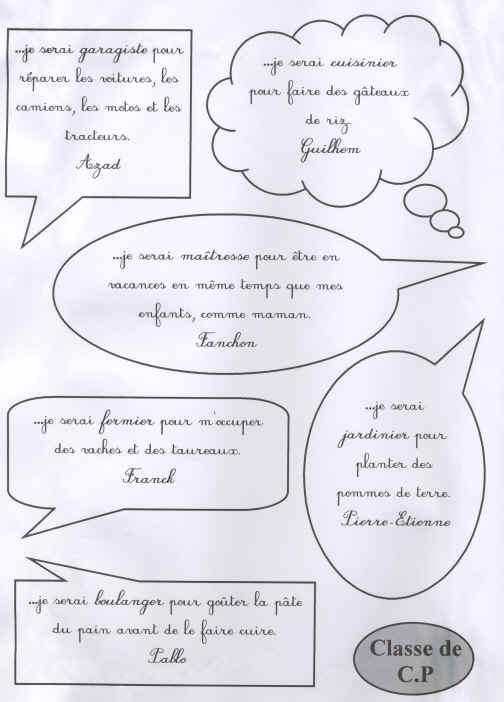 ...je serai garagiste pour
réparer les voitures, les
camions, les motos et les
tracteurs.
Azad
...je serai cuisinier
pour faire des gâteaux
de riz.
Guilhem
...je serai maîtresse pour être en
vacances en même temps que mes
enfants, comme maman.
Fanchon
...je serai fermier pour m'occuper
des vaches et des taureaux.
Franck
...je serai
jardinier pour
planter des
pommes de terre.
Pierre-Etienne
...je serai boulanger pour goûter la pâte
du pain avant de le faire cuire.
Pablo
Classe de
C.P